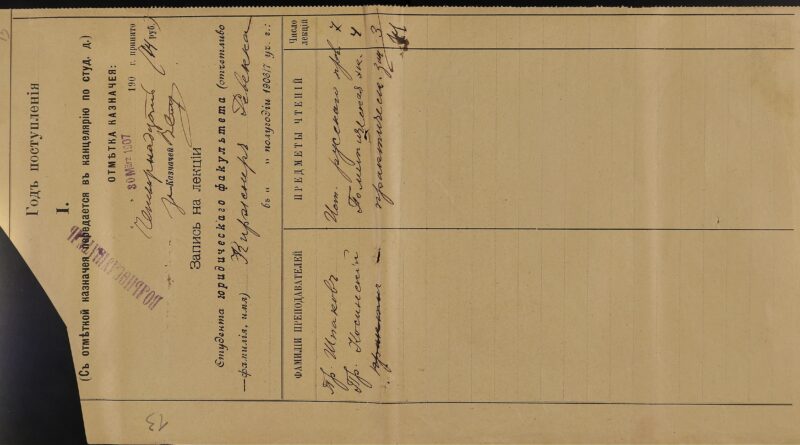 Годъ поступленія
I.
(Съ отмѣткой казначея передается въ канцелярію по студ. д.)
ОТМѢТКА КАЗНАЧЕЯ:
30 МАР 1907 190 г. принято
Четырнадцать (14 руб.)
За Казначея
ВОЛЬНОСЛУШАТЕЛЬ
Запись на лекціи
Студента юридическаго факультета (отчетливо
—фамилія, имя) Киржнеръ Ревекка
въ „ „ полугодіи 1906/7 уч. г.:
ФАМИЛІИ ПРЕПОДАВАТЕЛЕЙ ПРЕДМЕТЫ ЧТЕНІЙ Число лекцій
Пр. Шпаковъ Ист. русскаго пр. 7
Пр. Косинскій Политическая эк. 4
практическ. зан. 3
14
13